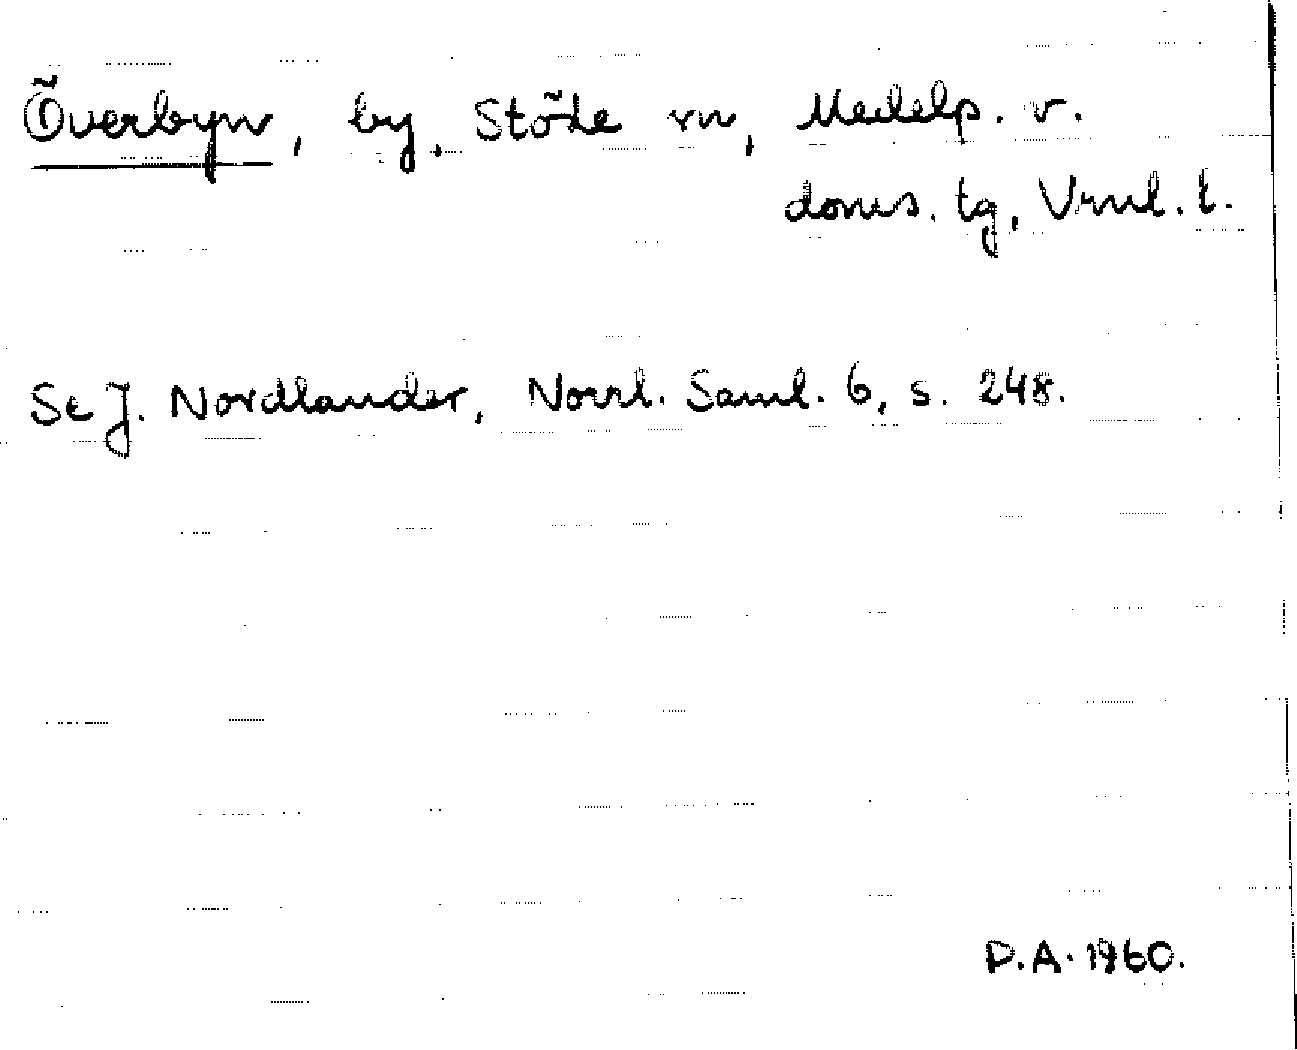 Överbyn, by, Stöde sn, Medelp. v.
doms. tg, Vrnl. l.
Se J. Nordlander, Norrl. Saml. 6, s. 248.
P.A. 1960.